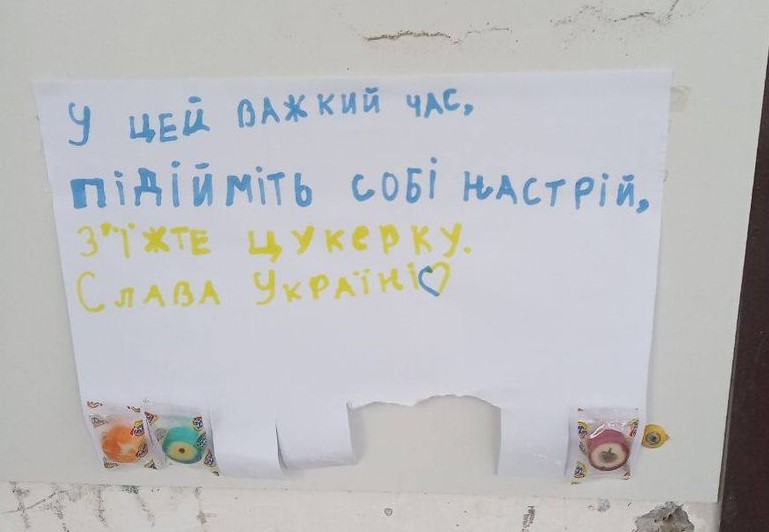 У цей важкий час,
підійміть собі настрій,
з'їжте цукерку.
Слава Україні